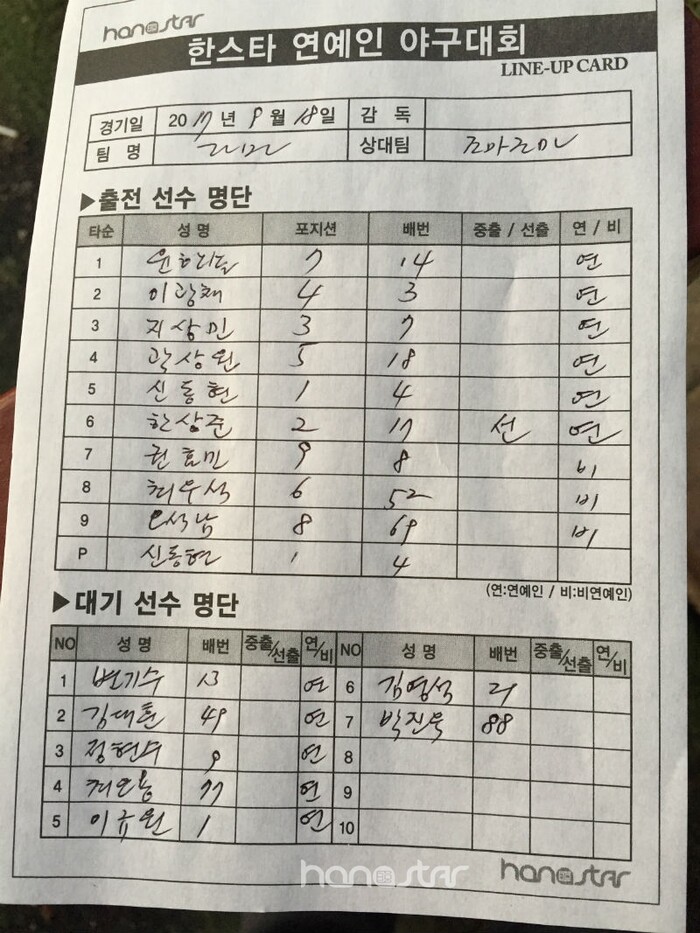 hanstar
한스타 연예인 야구대회
LINE-UP CARD
경기일 2017년 9월 18일 감 독
팀 명 상대팀 조마조마
▶출전 선수 명단
타순 성 명 포지션 배번 중출 / 선출 연 / 비
1 7 14 연
2 이광채 4 3 연
3 지상민 3 7 연
4 곽상원 5 18 연
5 신동현 1 4 연
6 한상준 2 17 선 연
7 권효민 9 8 비
8 최우석 6 52 비
9 오석남 8 69 비
P 신동현 1 4
(연:연예인 / 비:비연예인)
▶대기 선수 명단
NO 성 명 배번 중출/선출 연/비 NO 성 명 배번 중출/선출 연/비
1 변기수 13 연 6 김영석 21
2 김대훈 49 연 7 박진욱 88
3 정현수 9 연 8
4 77 연 9
5 이규원 1 연 10
hanstar hanstar